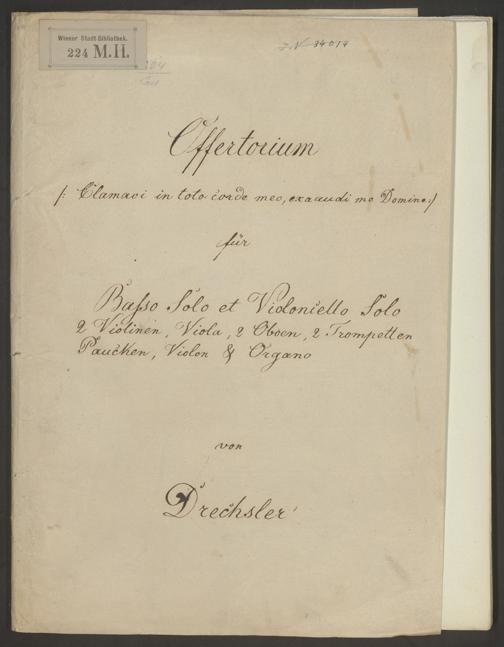 Wiener Stadt-Bibliothek.
224 M.H.
Offertorium
/: Clamavi in toto corde meo, exaudi me Domine :/
für
Basso Solo et Violoncello Solo
2 Violinen, Viola, 2 Oboen, 2 Trompetten
Paucken, Violon & Organo
von
Drechsler